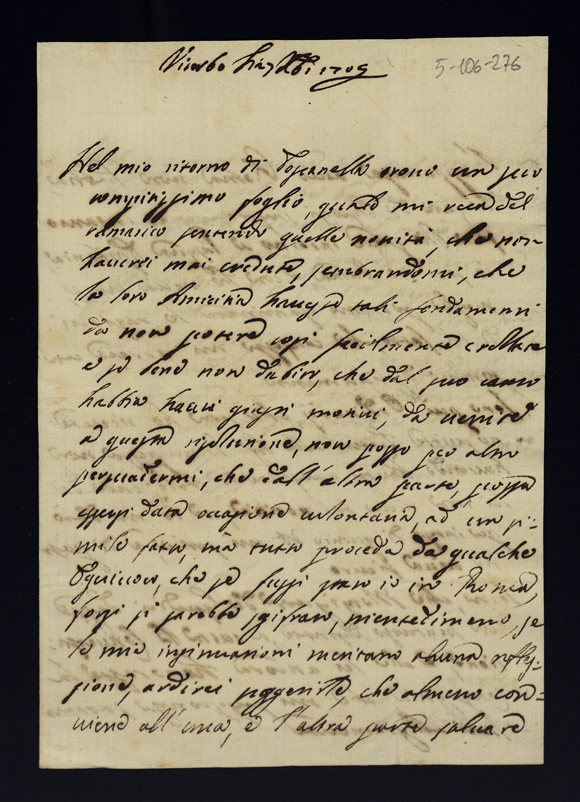 Viterbo li 27 Xbre 1709
5-106-276
Nel mio ritorno di Toscanella trovo un suo
compitissimo foglio, quanto mi reca del
ramarico sentendo quelle novità, che non
haverei mai credute, sembrandomi, che
la loro Amicitia havesse tali fondamenti
da non potere così facilmente crollare
e se bene non dubito, che dal suo canto
habbia havuti giusti motivi, da venire
a questa risolutione, non posso poi altro
persuadermi, che dall'altra parte, possa
essersi data occasione volontaria, ad un si-
mile fatto, mà tutto proceda da qualche
equivoco, che se fussi stato io in Roma,
forsi si sarebbe sgifrato, nientedimeno, se
le mie insinuationi meritano alcuna refles-
sione, ardirei suggerirle, che almeno con-
viene all'una, e l'altra parte salvare